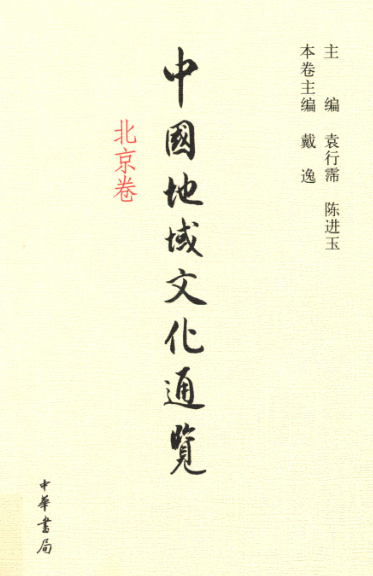 主　编　袁行霈　陈进玉
本卷主编　戴　逸
中國地域文化通覽
北京卷
中華書局